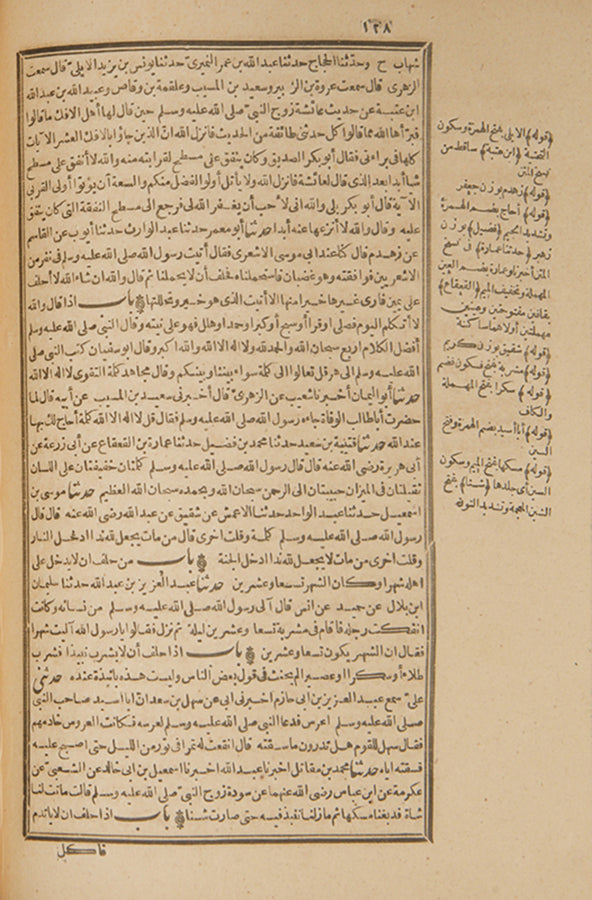 ١٣٨
شهاب ح وحدثنا الحجاج حدثنا عبد الله بن عمر النميرى حدثنا يونس بن يزيد الايلى قال سمعت
الزهرى قال سمعت عروة بن الزبير وسعيد بن المسيب وعلقمة بن وقاص وعبيد الله بن عبد الله
ابن عتبة عن حديث عائشة زوج النبى صلى الله عليه وسلم حين قال لها أهل الافك ما قالوا
فبرأها الله مما قالوا كل حدثنى طائفة من الحديث فانزل الله ان الذين جاؤا بالافك العشر الآيات
كلها فى براءتى فقال أبو بكر الصديق وكان ينفق على مسطح لقرابته منه والله لا أنفق على مسطح
شيأ أبدا بعد الذى قال لعائشة فانزل الله ولا يأتل أولوا الفضل منكم والسعة أن يؤتوا أولى القربى
الآية قال أبو بكر بلى والله انى لاحب أن يغفر الله لى فرجع الى مسطح النفقة التى كان ينفق
عليه وقال والله لا أنزعها عنه أبدا حدثنا أبو معمر حدثنا عبد الوارث حدثنا أيوب عن القاسم
عن زهدم قال كنا عند أبى موسى الاشعرى فقال أتيت رسول الله صلى الله عليه وسلم فى نفر من
الاشعريين فوافقته وهو غضبان فاستحملناه فحلف أن لا يحملنا ثم قال والله ان شاء الله لا أحلف
على يمين فارى غيرها خيرا منها الا أتيت الذى هو خير وتحللتها باب اذا قال والله
لا أتكلم اليوم فصلى أو قرأ أو سبح أو كبر أو حمد أو هلل فهو على نيته وقال النبى صلى الله عليه وسلم
أفضل الكلام أربع سبحان الله والحمد لله ولا اله الا الله والله اكبر وقال أبو سفيان كتب النبى صلى
الله عليه وسلم الى هرقل تعالوا الى كلمة سواء بيننا وبينكم وقال مجاهد كلمة التقوى لا اله الا الله
حدثنا أبو اليمان أخبرنا شعيب عن الزهرى قال أخبرنى سعيد بن المسيب عن أبيه قال لما
حضرت أبا طالب الوفاة جاءه رسول الله صلى الله عليه وسلم فقال قل لا اله الا الله كلمة أحاج لك بها
عند الله حدثنا قتيبة بن سعيد حدثنا محمد بن فضيل حدثنا عمارة بن القعقاع عن أبى زرعة عن
أبى هريرة رضى الله عنه قال قال رسول الله صلى الله عليه وسلم كلمتان خفيفتان على اللسان
ثقيلتان فى الميزان حبيبتان الى الرحمن سبحان الله وبحمده سبحان الله العظيم حدثنا موسى بن
اسمعيل حدثنا عبد الواحد حدثنا الاعمش عن شقيق عن عبد الله رضى الله عنه قال قال
رسول الله صلى الله عليه وسلم كلمة وقلت اخرى قال من مات يجعل لله ندا ادخل النار
وقلت اخرى من مات لا يجعل لله ندا ادخل الجنة باب من حلف ان لا يدخل على
اهله شهرا وكان الشهر تسعا وعشرين حدثنا عبد العزيز بن عبد الله حدثنا سليمان
ابن بلال عن حميد عن انس قال آلى رسول الله صلى الله عليه وسلم من نسائه وكانت
انفكت رجله فاقام فى مشربة تسعا وعشرين ليلة ثم نزل فقالوا يا رسول الله آليت شهرا
فقال ان الشهر يكون تسعا وعشرين باب اذا حلف أن لا يشرب نبيذا فشرب
طلاء أو سكرا او عصيرا لم يحنث فى قول بعض الناس وليست هذه بانبذة عنده حدثنى
على سمع عبد العزيز بن أبى حازم اخبرنى ابى عن سهل بن سعد ان ابا اسيد صاحب النبى
صلى الله عليه وسلم اعرس فدعا النبى صلى الله عليه وسلم لعرسه فكانت العروس خادمهم
فقال سهل للقوم هل تدرون ما سقته قال انقعت له تمرا فى تور من الليل حتى اصبح عليه
فسقته اياه حدثنا محمد بن مقاتل اخبرنا عبد الله اخبرنا اسمعيل بن ابى خالد عن الشعبى عن
عكرمة عن ابن عباس رضى الله عنهما عن سودة زوج النبى صلى الله عليه وسلم قالت ماتت لنا
شاة فدبغنا مسكها ثم ما زلنا ننبذ فيه حتى صارت شنا باب اذا حلف ان لا يأتدم
فأكل
(قوله) الايلى بفتح الهمزة وسكون
التحتية (ابن عتبة) ساقط من
نسخ المتن
(قوله) زهدم بوزن جعفر
(قوله) أحاج بضم الهمزة
وتشديد الجيم (فضيل) بوزن
زهير (حدثنا عمارة) فى نسخ
المتن أخبرنا وعمارة بضم العين
المهملة وتخفيف الميم (القعقاع)
بقافين مفتوحتين وعينين
مهملتين أولاهما ساكنة
(قوله) شقيق بوزن كريم
(قوله) مشربة بفتح فسكون فضم
(قوله) سكرا بفتح المهملة
والكاف
(قوله) أبا أسيد بضم الهمزة وفتح
السين
(قوله) مسكها بفتح الميم وسكون
السين أى جلدها (شنا) بفتح
الشين المعجمة وتشديد النون